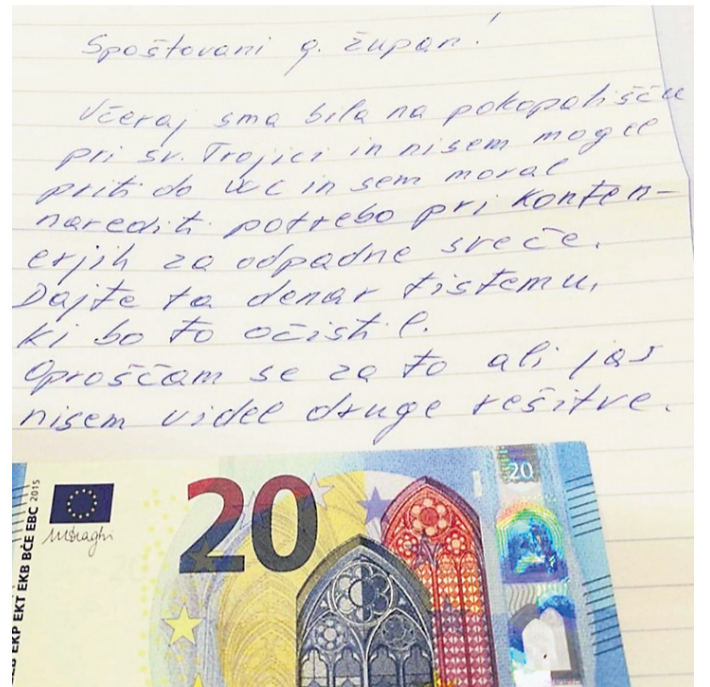 Spoštovani g. župan!
Včeraj sma bila na pokopališču
pri sv. Trojici in nisem mogel
priti do WC in sem moral
narediti potrebo pri konten-
erjih za odpadne sveče.
Dajte ta denar tistemu,
ki bo to očistil.
Oproščam se za to ali jaz
nisem videl druge rešitve.
20
20
EKP EKT EKB BCE EBC 2015